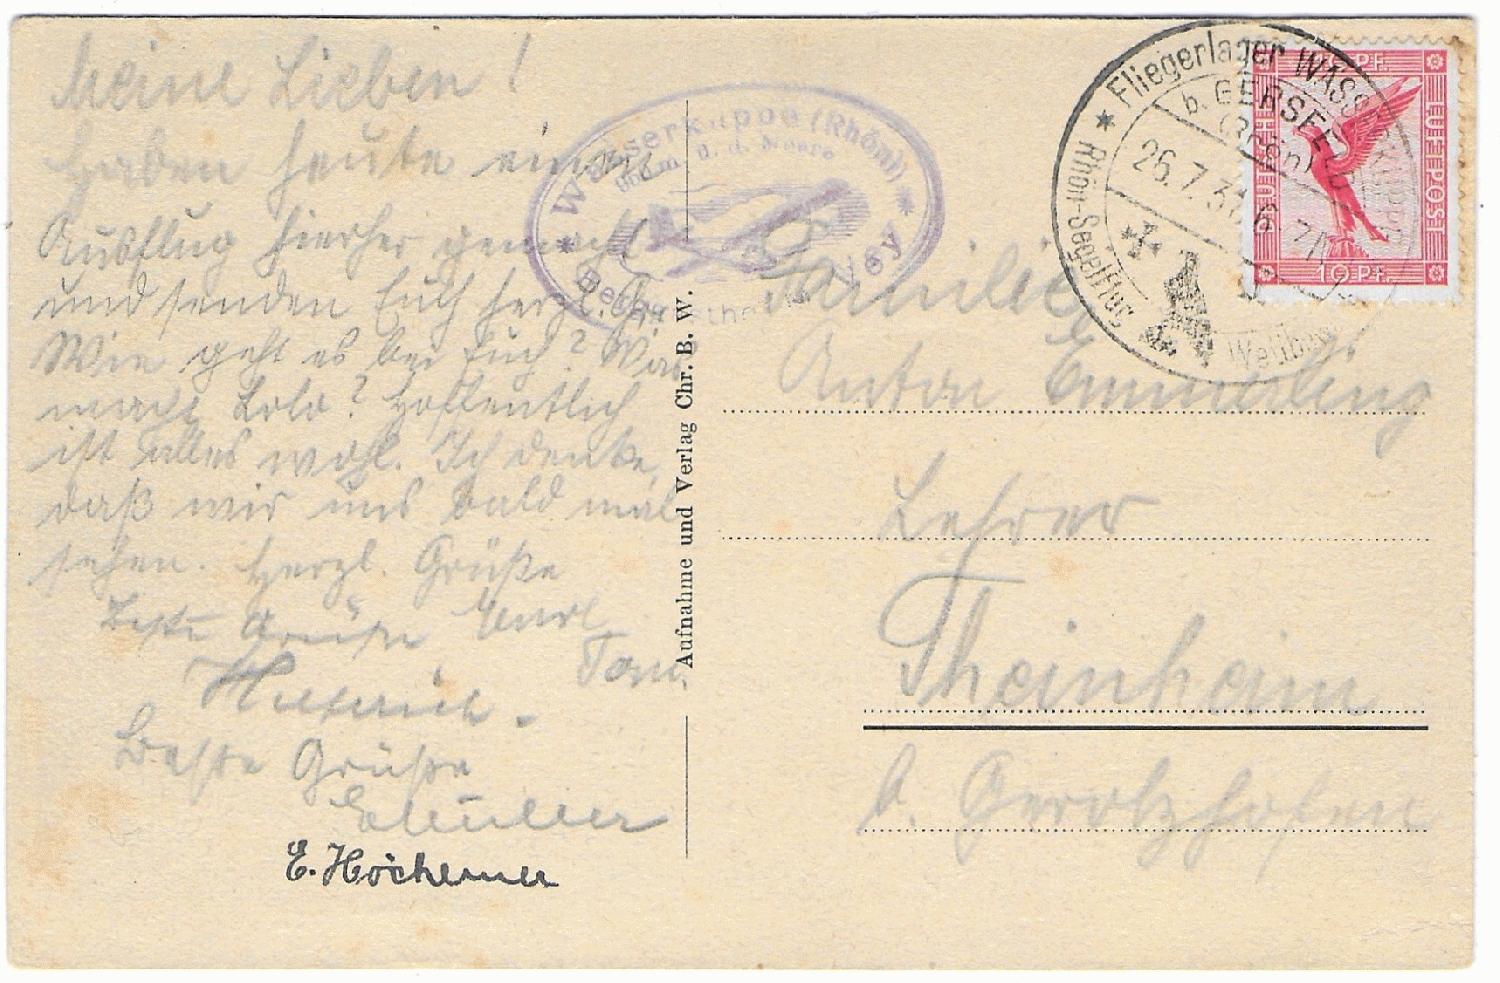 Meine Lieben!
Haben heute einen
Ausflug hierher gemacht
und senden Euch herzl. Gr.
Wie geht es bei Euch? Was
macht Lolo? Hoffentlich
ist alles wohl. Ich denke,
daß wir uns bald mal
sehen. Herzl. Grüße
Karl
Beste Grüße
Toni
Beste Grüße
E. Höchemer
Wasserkuppe (Rhön)
950 m. ü. d. Meere
Aufnahme und Verlag Chr. B. W.
Fliegerlager WASSERKUPPE
b. GERSFELD
(Rhön)
26.7.31.6-7N
Rhön-Segelflug
Wettbewerb
DEUTSCHE FLUGPOST
10 PF.
10 PF.
Familie
Anton Emmerling
Lehrer
Theinheim
b. Gerolzhofen